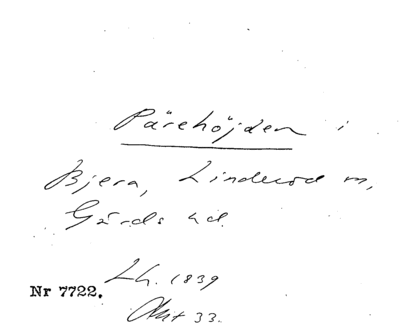 Pärehöjden i
Bjera, Linderöd m,
Gärds hd.
Lh. 1839
Nr 7722.
Akt 33.